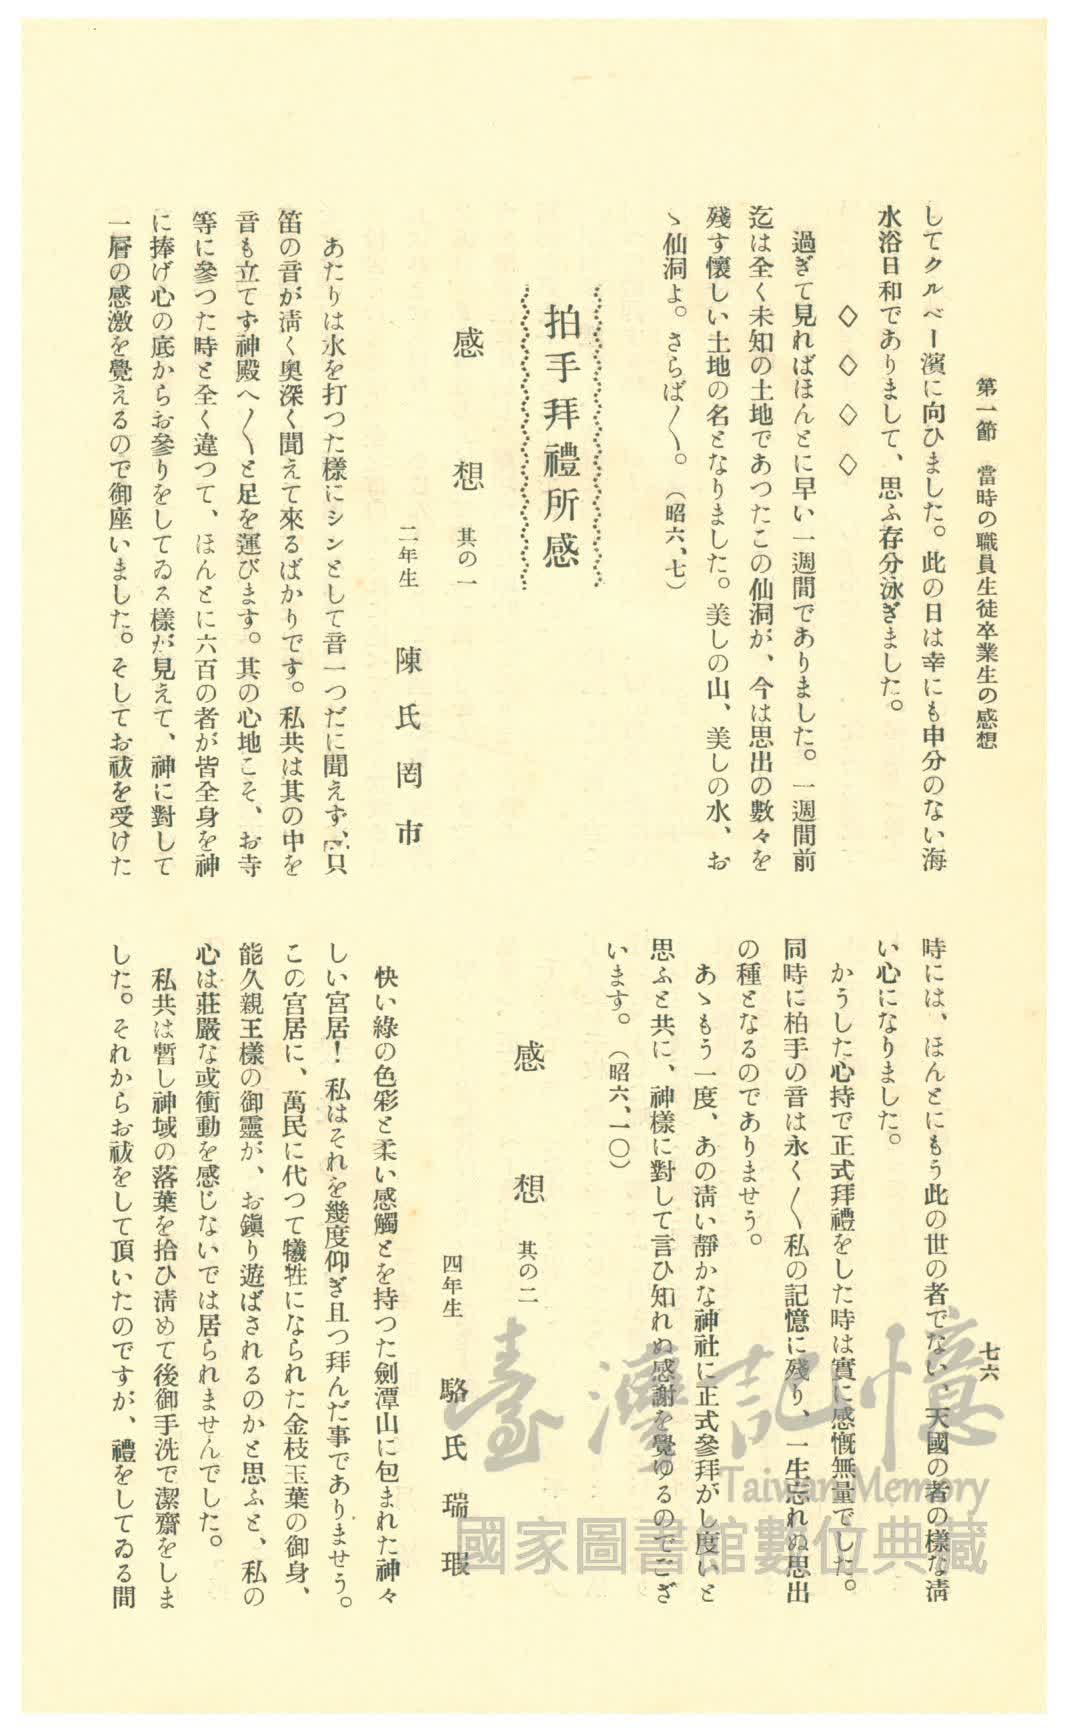 第一節　當時の職員生徒卒業生の感想
七六
してクルベー濱に向ひました。此の日は幸にも申分のない海
水浴日和でありまして、思ふ存分泳ぎました。
◇　◇　◇　◇
過ぎて見ればほんとに早い一週間でありました。一週間前
迄は全く未知の土地であつたこの仙洞が、今は思出の數々を
殘す懷しい土地の名となりました。美しの山、美しの水、お
ゝ仙洞よ。さらば〱。（昭六、七）
拍手拜禮所感
感　想　其の一
二年生　陳氏罔市
あたりは水を打つた樣にシンとして音一つだに聞えず、只
笛の音が淸く奧深く聞えて來るばかりです。私共は其の中を
音も立てず神殿へ〱と足を運びます。其の心地こそ、お寺
等に參つた時と全く違つて、ほんとに六百の者が皆全身を神
に捧げ心の底からお參りをしてゐる樣が見えて、神に對して
一層の感激を覺えるので御座いました。そしてお祓を受けた
時には、ほんとにもう此の世の者でない、天國の者の樣な淸
い心になりました。
かうした心持で正式拜禮をした時は實に感慨無量でした。
同時に柏手の音は永く〱私の記憶に殘り、一生忘れぬ思出
の種となるのでありませう。
あゝもう一度、あの淸い靜かな神社に正式參拜がし度いと
思ふと共に、神樣に對して言ひ知れぬ感謝を覺ゆるのでござ
います。（昭六、一〇）
感　想　其の二
四年生　駱氏瑞瑕
快い綠の色彩と柔い感觸とを持つた劍潭山に包まれた神々
しい宮居！私はそれを幾度仰ぎ且つ拜んだ事でありませう。
この宮居に、萬民に代つて犧牲になられた金枝玉葉の御身、
能久親王樣の御靈が、お鎭り遊ばされるのかと思ふと、私の
心は莊嚴な或衝動を感じないでは居られませんでした。
私共は暫し神域の落葉を拾ひ淸めて後御手洗で潔齋をしま
した。それからお祓をして頂いたのですが、禮をしてゐる間
臺灣記憶
Taiwan Memory
國家圖書館數位典藏